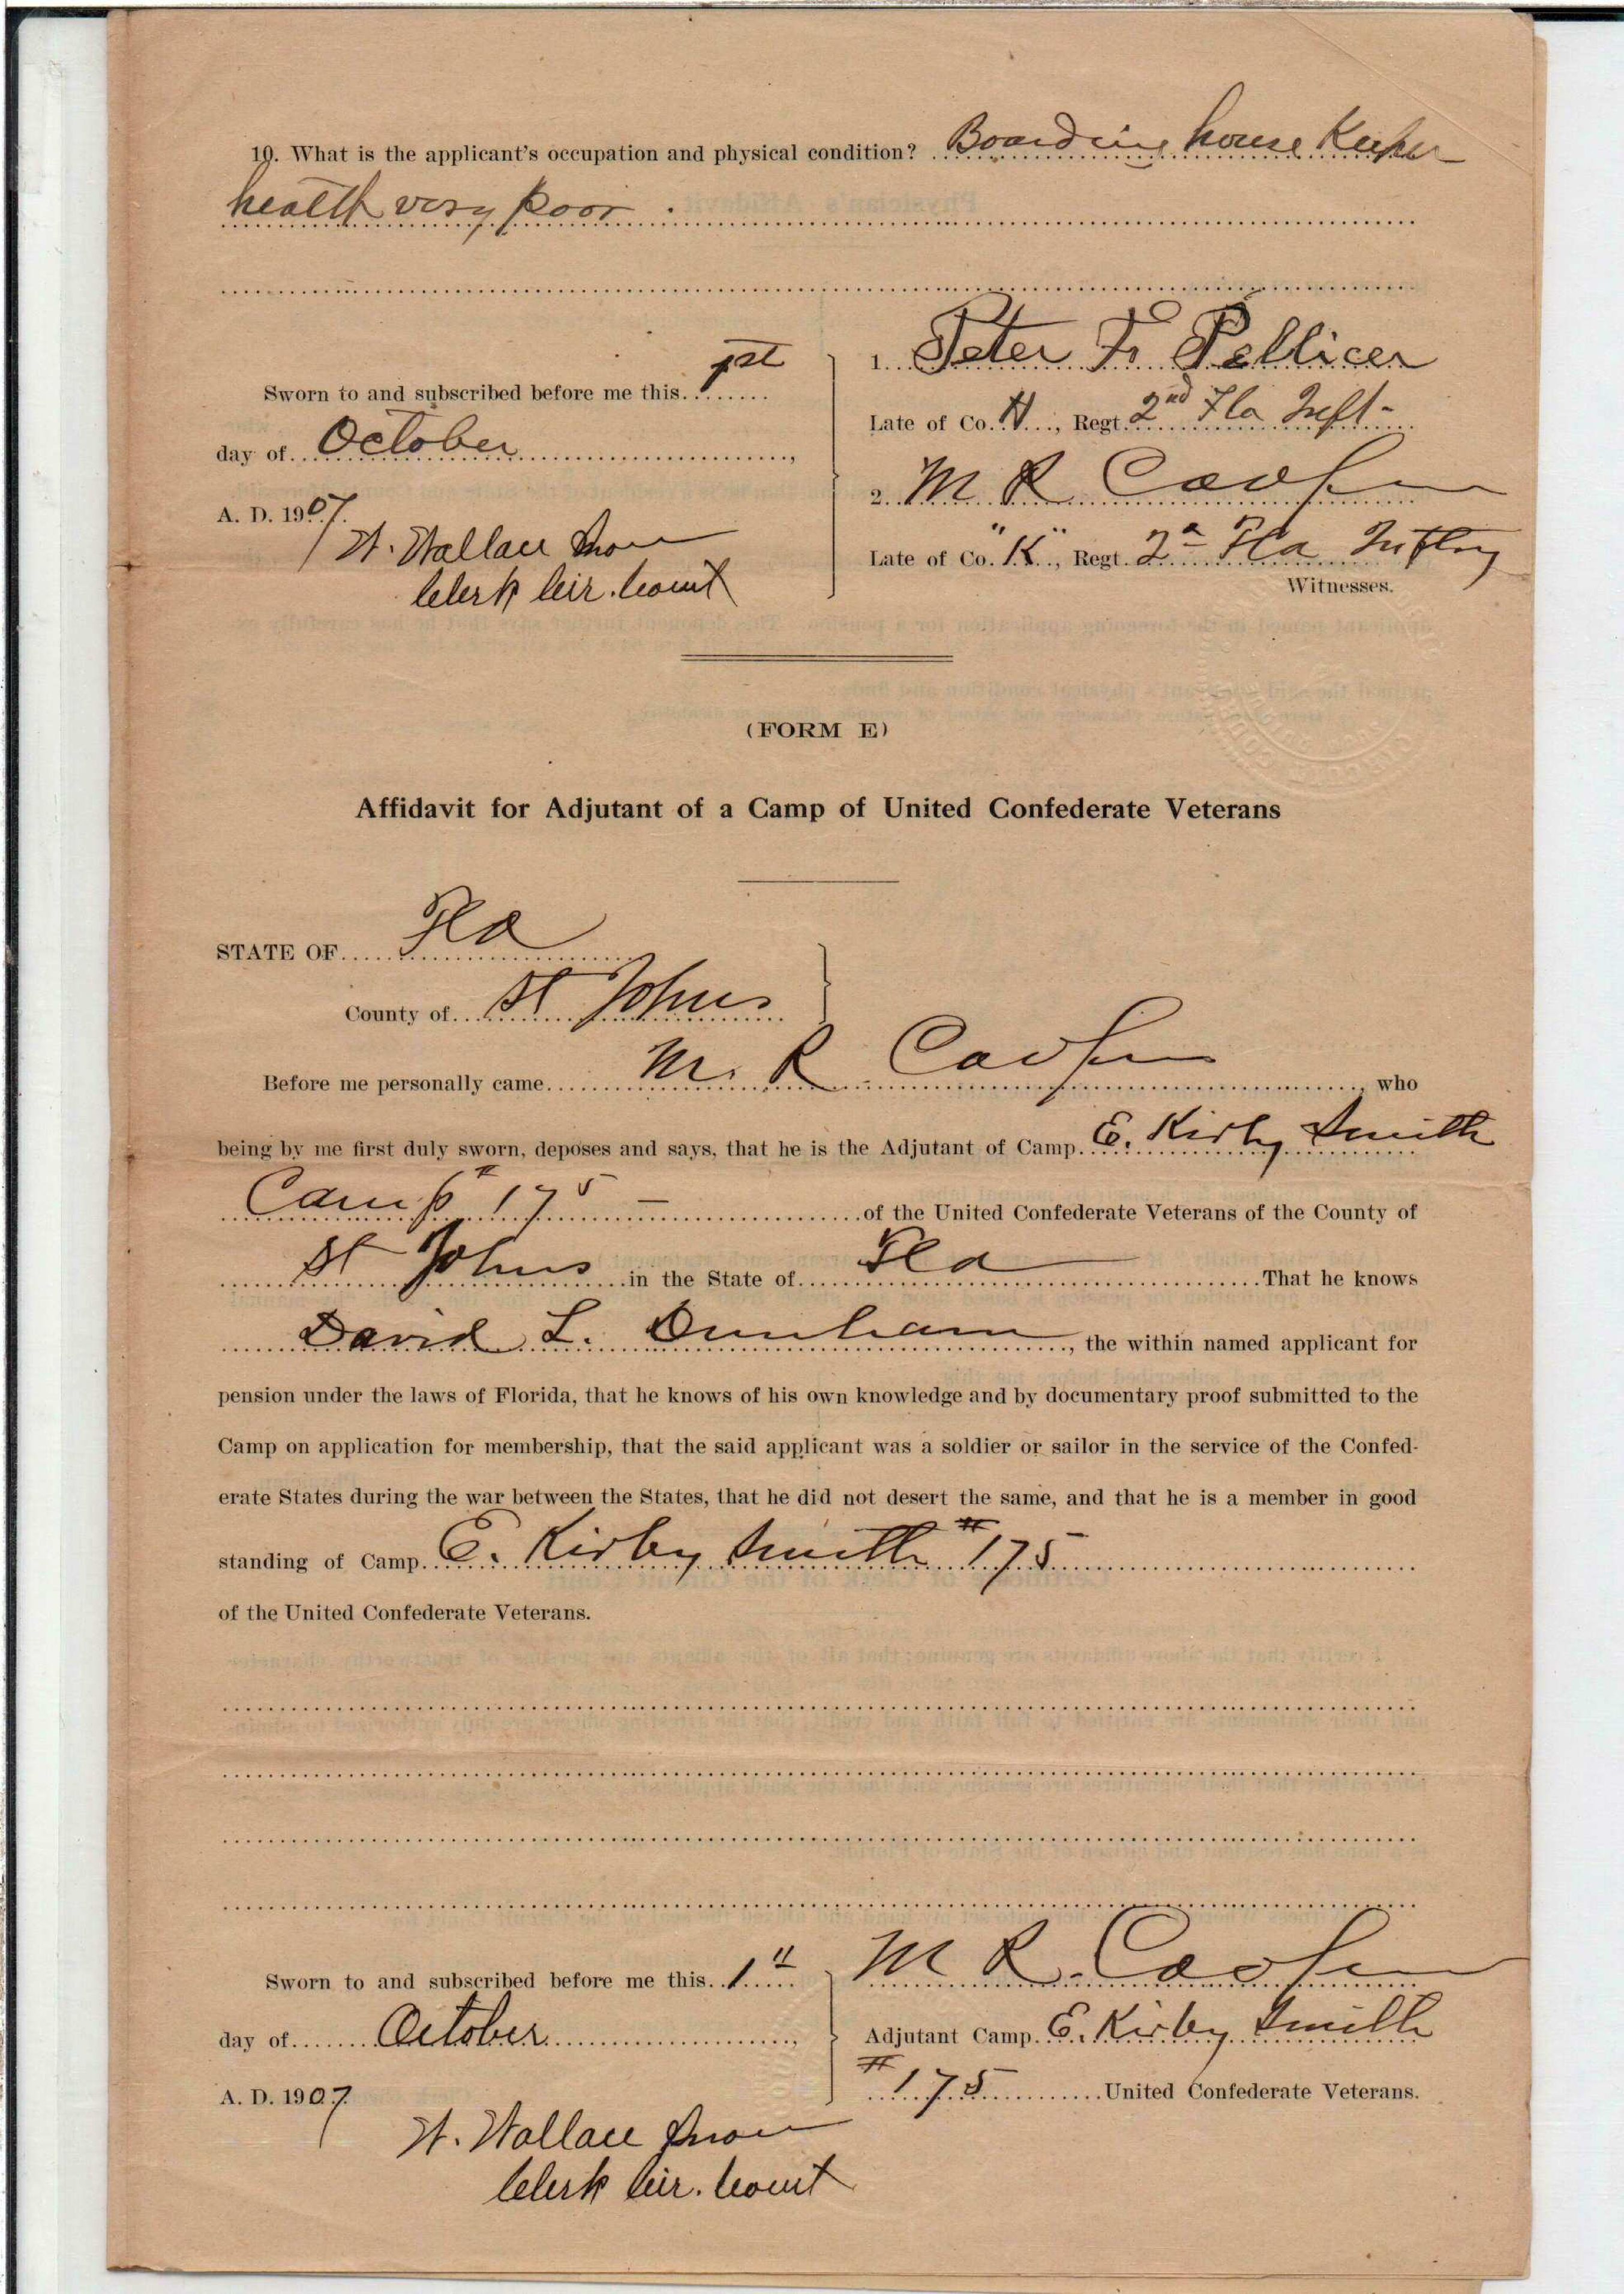 10. What is the applicant's occupation and physical condition? Boarding house Keeper
health very poor
Sworn to and subscribed before me this 1st
day of October,
A. D. 1907.
W. Wallace Snow
Clerk Cir. Court
1. Peter F. Pellicer
Late of Co. H, Regt. 2nd Fla Inft-
2. M R Cooper
Late of Co. "K", Regt. 2d Fla Inftry
Witnesses.
(FORM E)
Affidavit for Adjutant of a Camp of United Confederate Veterans
STATE OF Fla
County of St Johns
Before me personally came M. R Cooper, who
being by me first duly sworn, deposes and says, that he is the Adjutant of Camp E. Kirby Smith
Camp # 175 — of the United Confederate Veterans of the County of
St Johns in the State of Fla That he knows
David L. Dunham, the within named applicant for
pension under the laws of Florida, that he knows of his own knowledge and by documentary proof submitted to the
Camp on application for membership, that the said applicant was a soldier or sailor in the service of the Confed-
erate States during the war between the States, that he did not desert the same, and that he is a member in good
standing of Camp E. Kirby Smith # 175
of the United Confederate Veterans.
Sworn to and subscribed before me this 1st
day of October,
A. D. 1907.
W. Wallace Snow
Clerk Cir. Court
M R. Cooper
Adjutant Camp E. Kirby Smith
# 175 United Confederate Veterans.